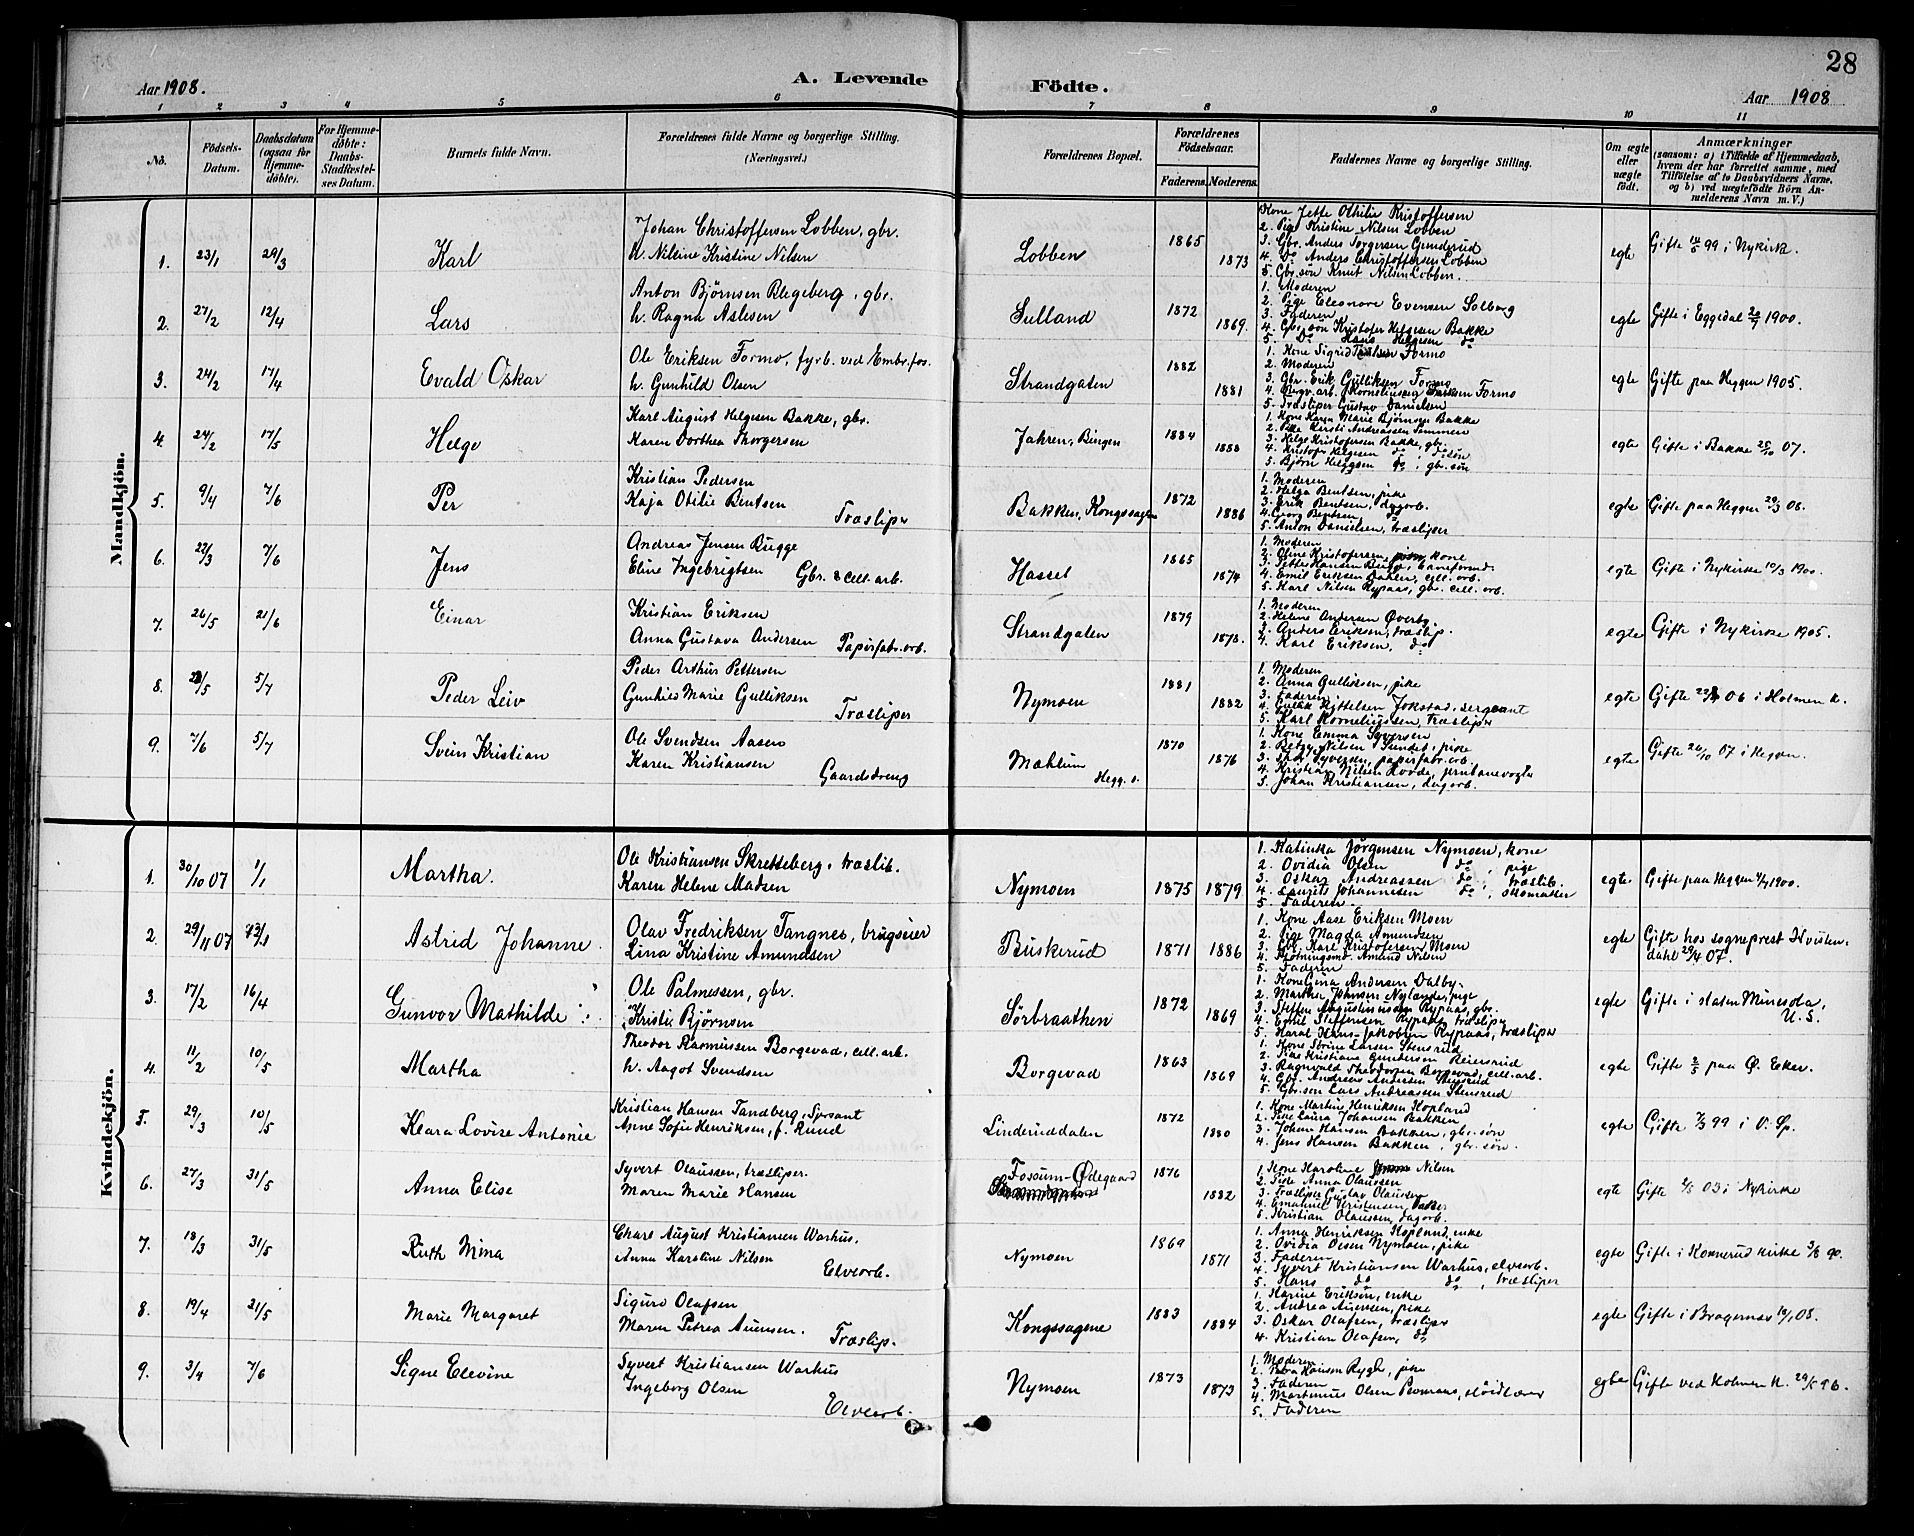 28
Aar 1908.
A. Levende
Födte.
Aar 1908
1 2 3 4 5 6 7 8 9 10 11
No.
Födsels-
Datum.
Daabsdatum
(ogsaa for
Hjemme-
döbte).
For Hjemme-
döbte:
Daabs-
Stadfæstel-
ses Datum.
Barnets fulde Navn.
Forældrenes fulde Navne og borgerlige Stilling.
(Næringsvei.)
Forældrenes Bopæl.
Forældrenes
Födselsaar.
Faderens.
Moderens.
Faddernes Navne og borgerlige Stilling.
Om ægte
eller
uægte
födt.
Anmærkninger
(saasom: a) i Tilfælde af Hjemmedaab,
hvem der har forrettet samme, med
Tilföielse af to Daabsvidners Navne,
og b) ved uægtefödte Börn An-
melderens Navn m. V.)
Mandkjön.
1. 23/1 29/3 Karl
Johan Christoffersen Lobben, gbr.
h. Nilsine Kristine Nilsen
Lobben 1865 1873
Kone Jette Othilie Kristoffersen
2. Pige Kristine Nilsen Lobben
3. Gbr. Anders Torgersen Gunderud
4. Do Anders Christoffersen Lobben
5. Gbr.søn Knut Nilsen Lobben.
egte Gifte 99 i Nykirk.
2. 27/2 12/4 Lars
Anton Bjørnsen Blegeberg, gbr.
h. Ragna Aslesen
Sulland 1872 1869.
1. Moderen
2. Pige Eleonore Evensen Solberg
3. Faderen
4. Gbr. søn Kristofer Helgesen Bakke
5. Do Hans Helgesen do
egte Gifte i Eggedal 1900.
3. 24/2 17/4 Evald Oskar
Ole Eriksen Formo, fyrb. ved Embr. fos.
h. Gunhild Olsen
Strandgaten 1882 1881
1. Kone Sigrid Formo
2. Moderen
3. Gbr. Erik Gulliksen Formo
4. Formo
5. Træsliper Gustav Danielsen
egte Gifte paa Heggen 1905.
4. 24/2 17/5 Helge
Karl August Helgesen Bakke, gbr.
Karen Dorthea Thorgersen
Jahren, Bingen 1884 1888
1. Kone Karen Marie Bjørnsen Bakke
2. Pike Kirsti Andreassen
3. Helge Kristofersen Bakke, gbr.
4. Kristofer Helgesen do, do søn
5. Bjørn Helgesen do, gbr. søn
egte Gifte i Bakke 25/10 07.
5. 9/4 7/6 Per
Kristian Pedersen
Kaja Otilie Bentsen
Træsliper
Bakken, Kongssagene 1872 1886
1. Moderen
2. Helga Bentsen, pike
3. Erik Bentsen, dagarb.
4. Georg Bentsen do
5. Anton Danielsen, træsliper
egte Gifte paa Heggen 29/3 08.
6. 22/3 7/6 Jens
Andreas Jensen Bugge
Eline Ingebrigtsen Gbr. & cell. arb.
Hassel 1865 1874
1. Moderen
2. Oline Kristofersen, kone
4. Emil Eriksen cell. arb.
5. Karl Nilsen Rypaas, gbr. cell. arb.
egte Gifte i Nykirke 10/3 1900.
7. 26/5 21/6 Einar
Kristian Eriksen
Anna Gustava Andersen Papirfabr. arb.
Strandgaten 1879 1878.
1. Moderen
2. Helene Andersen Øverby.
3. Anders Eriksen, træslip.
4. Karl Eriksen, do
egte Gifte i Nykirke 1905.
8. 5/7 Peder Leiv
Peder Arthur Pettersen
Gunhild Marie Gulliksen
Træsliper
Nymoen 1881 1882
1. Moderen
2. Anna Gulliksen, pike
3. Faderen
4. Kittelsen Jokstad, sergeant
5. Karl Korneliussen, træsliper
egte Gifte 06 i Holmen k.
9. 7/6 5/7 Svein Kristian
Ole Svendsen Aasen
Karen Kristiansen
Gaardsdreng
Mæhlum
Hegg. s.
1870 1876
1. Kone Emma Syversen
2. Betzy Nilsen Sundet, pike
3. Syversen, papirfabr. arb.
4. Kristian Nilsen
5. Johan Kristiansen, dagarb.
egte Gifte 26/10 07 i Heggen.
Kvindekjön.
1. 30/10 07 1/1 Martha.
Ole Kristiansen Skretteberg, træslib.
Karen Helene Madsen
Nymoen 1875 1879
1. Katinka Jörgensen Nymoen, kone
2. Ovidia Olsen do, pige
3. Oskar Andreassen do, træslib.
4. Laurits Johannesen do, skomaker
5. Faderen.
egte Gifte paa Heggen 1900.
2. 29/11 07 Astrid Johanne.
Olav Fredriksen Tangnes, brugseier
Lina Kristine Amundsen
Buskerud 1871 1886
1. Kone Aase Eriksen Moen
2. Pige Magda Amundsen
3. Karl Kristofersen Moen
4. Amund Nilsen
5. Faderen
egte Gifte hos sogneprest Hvisten-
dahl 29/4 07.
3. 17/2 16/4 Gunvor Mathilde
Ole Palmessen, gbr.
Kristi Bjørnsen
Sørbraathen 1872 1869
1. Kone Gina Andersen Dalby.
2. Marthe Johnsen Nylænde, pige
3. Steffen Augustinussen Rypaas, gbr.
4. Emil Steffensen Rypaas, træsliper
5. Haral Hans Jakobsen Rypaas, træsliper
egte Gifte i staten Minesota,
U. S.
4. 11/2 10/5 Martha
Theodor Rasmussen Borgevad, cell. arb.
h. Aagot Svendsen
Borgevad 1863 1869
1. Kone Sörine Larsen Stensrud
2. Pike Kristiane Gundersen Beiersrud
3. Ragnvald Theodorsen Borgevad, cell. arb.
4. Gbr. Andreas Andersen Stensrud
5. Gbr. søn Lars Andreassen Stensrud
egte Gifte 2/5 paa Ø. Eker.
5. 29/3 10/5 Klara Lovise Antonie
Kristian Hansen Tandberg, Sersant
Anne Sofie Henriksen, f. Rund
Linderuddalen 1872 1880
1. Kone Martine Henriksen Kopland
2. Pike Laura Johansen Bakken
3. Johan Hansen Bakken, gbr. søn
4. Jens Hansen Bakken, gbr. søn.
egte Gifte 99 i
6. 27/3 31/5 Anna Elise
Syvert Olaussen, træsliper.
Maren Marie Hansen
Fossum-Ødegaard 1876 1882
1. Kone Karoline Nilsen
2. Pike Anna Olaussen
3. Træsliper Gustav Olaussen
4. Emanuel Kristensen,
5. Kristian Olaussen, dagarb.
egte Gifte 03 i Nykirke
7. 18/3 31/5 Ruth Mina
Charl August Kristiansen Warhus.
Anna Karoline Nilsen
Elvearb.
Nymoen 1869 1871
1. Anna Henriksen Kopland, enke
2. Ovidia Olsen Nymoen, pike
3. Faderen
4. Syvert Kristiansen Warhus, elvearb.
5. Hans do do, træsliper
egte Gifte i Konnerud kirke 90.
8. 19/4 21/5 Marie Margaret
Sigurd Olafsen
Maren Petrea Auensen.
Træslip.
Kongssagene 1883 1884
1. Karine Eriksen, enke
2. Andrea Auensen, pike
3. Oskar Olafsen, træsliper
4. Kristian Olafsen, do
egte Gifte i Bragernæs 19/1 08.
9. 3/4 7/6 Signe Elevine
Syvert Kristiansen Warhus
Ingeborg Olsen
Elvearb.
Nymoen 1873 1873
1. Moderen
2. Hansen Rygh, pike
3. Faderen
4. Martinius Olsen
5. Faderen
egte Gifte ved Holmen k. 96.